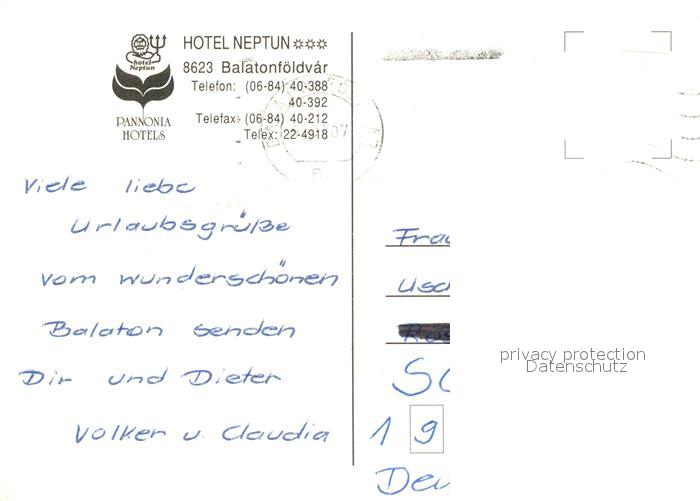 hotel
Neptun
PANNONIA
HOTELS
HOTEL NEPTUN
8623 Balatonföldvár
Telefon: (06-84) 40-388
40-392
Telefax: (06-84) 40-212
Telex: 22-4918
Viele liebe
Urlaubsgrüße
vom wunderschönen
Balaton senden
Dir und Dieter
Volker u. Claudia
Frau
19
privacy protection
Datenschutz